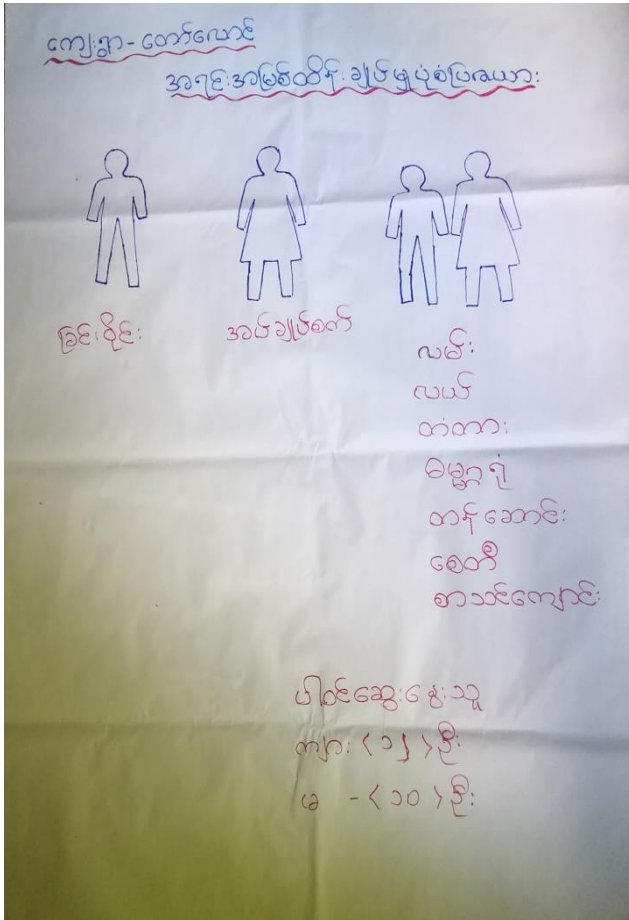 ကျေးရွာ - တော်လောင်
အရင်းအမြစ်ထိန်းချုပ်မှုပုံစံပြဇယား
ခြင်းဝိုင်း
အပ်ချုပ်စက်
လမ်း
လယ်
တံတား
ဓမ္မာရုံ
တန်ဆောင်း
စေတီ
စာသင်ကျောင်း
ပါဝင်ဆွေးနွေးသူ
ကျား <၁၂> ဦး
မ - <၁၀> ဦး